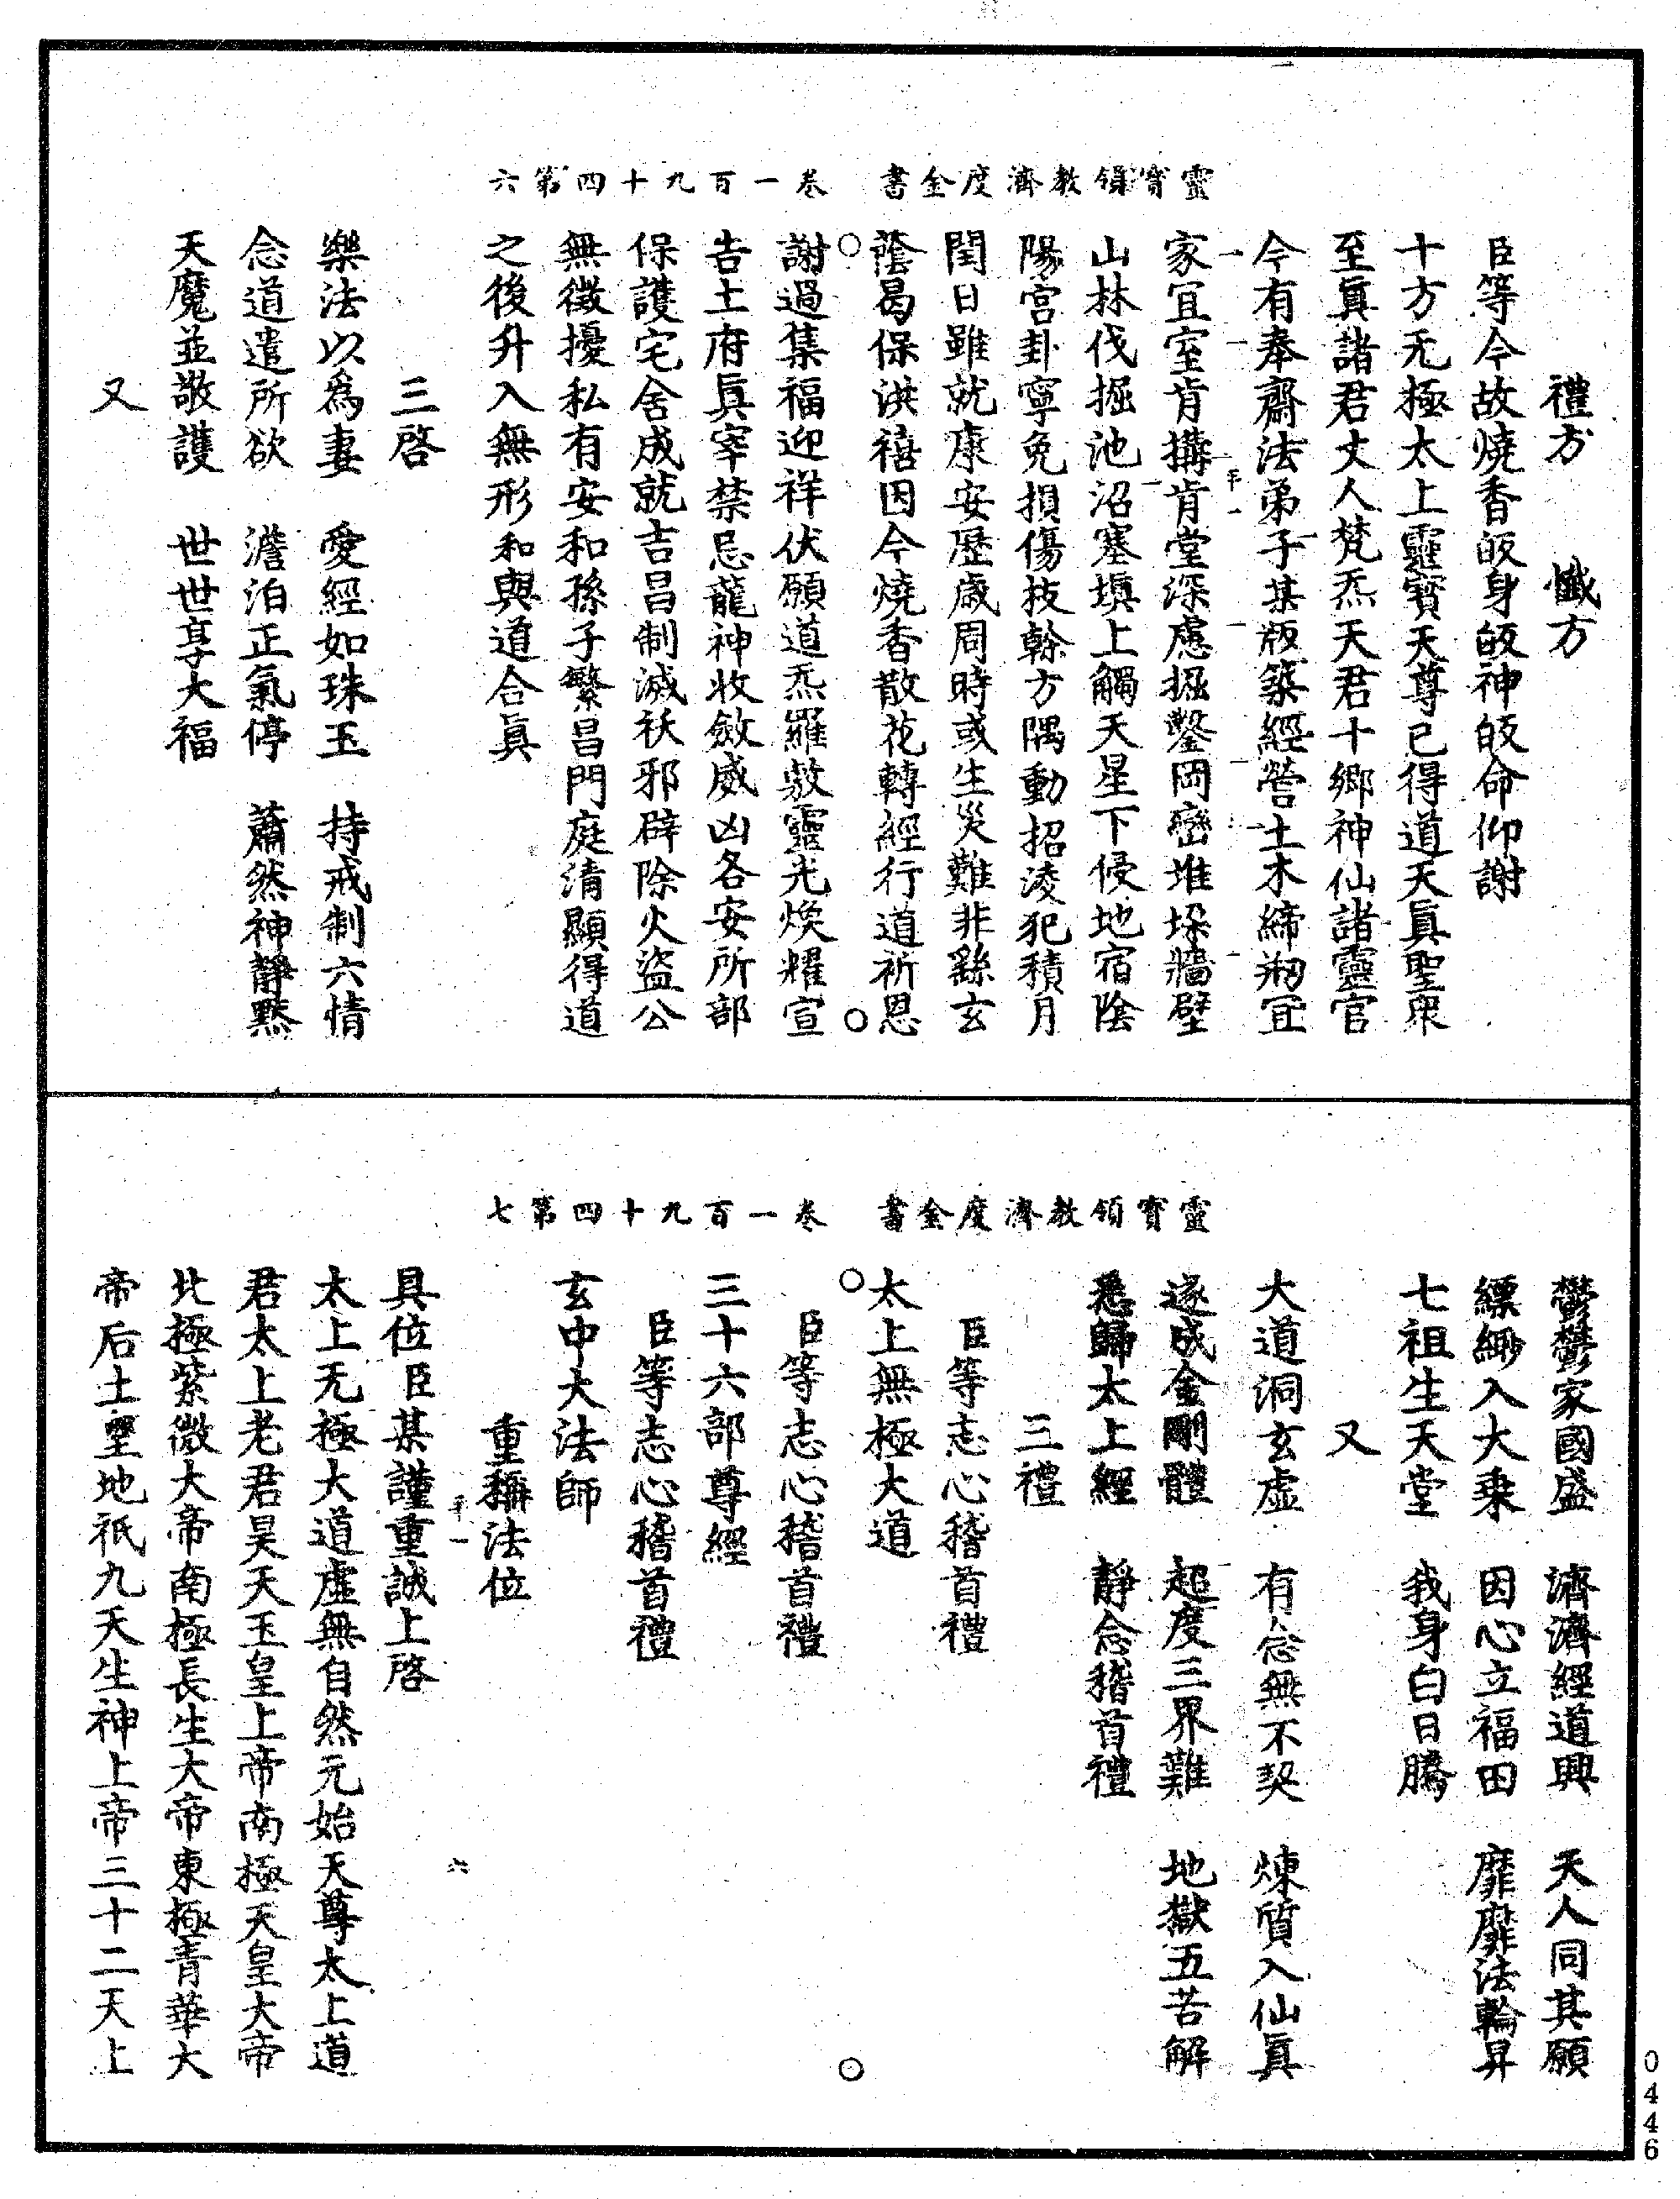 靈寶領教濟度金書　卷一百九十四第六
禮方　懺方
臣等今故燒香皈身皈神皈命仰謝
十方无極太上靈寶天尊已得道天眞聖衆
至眞諸君丈人梵炁天君十鄉神仙諸靈官
今有奉齋法弟子某版築經營土木締剏冝
家冝室肯搆肯堂深慮掘鑿岡巒堆垜牆壁
山林伐掘池沼塞塡上觸天星下侵地宿陰
陽宫卦寧免損傷枝榦方隅動招淩犯積月
閏日雖就康安歷歲周時或生災難非繇玄
蔭曷保洪禧因今燒香散花轉經行道祈恩
謝過集福迎祥伏願道炁羅敷靈光煥耀宣
告土府眞宰禁忌龍神收斂威凶各安所部
保護宅舍成就吉昌制滅袄邪辟除火盜公
無徵擾私有安和孫子繁昌門庭清顯得道
之後升入無形和與道合眞
三啓
樂法以爲妻　愛經如珠玉　持戒制六情
念道遣所欲　澹泊正氣停　蕭然神靜黙
天魔並敬護　世世享大福
又
靈寶領教濟度金書　卷一百九十四第七
鬱鬱家國盛　濟濟經道興　天人同其願
縹緲入大乗　因心立福田　靡靡法輪昇
七祖生天堂　我身白日騰
又
大道洞玄虛　有念無不契　煉質入仙眞
遂成金剛體　超度三界難　地獄五苦解
悉歸太上經　靜念稽首禮
三禮
臣等志心稽首禮
太上無極大道
臣等志心稽首禮
三十六部尊經
臣等志心稽首禮
玄中大法師
重稱法位
具位臣某謹重誠上啓
太上无極大道虛無自然元始天尊太上道
君太上老君昊天玉皇上帝南極天皇大帝
北極紫微大帝南極長生大帝東極青華大
帝后土皇地祇九天生神上帝三十二天上
0446